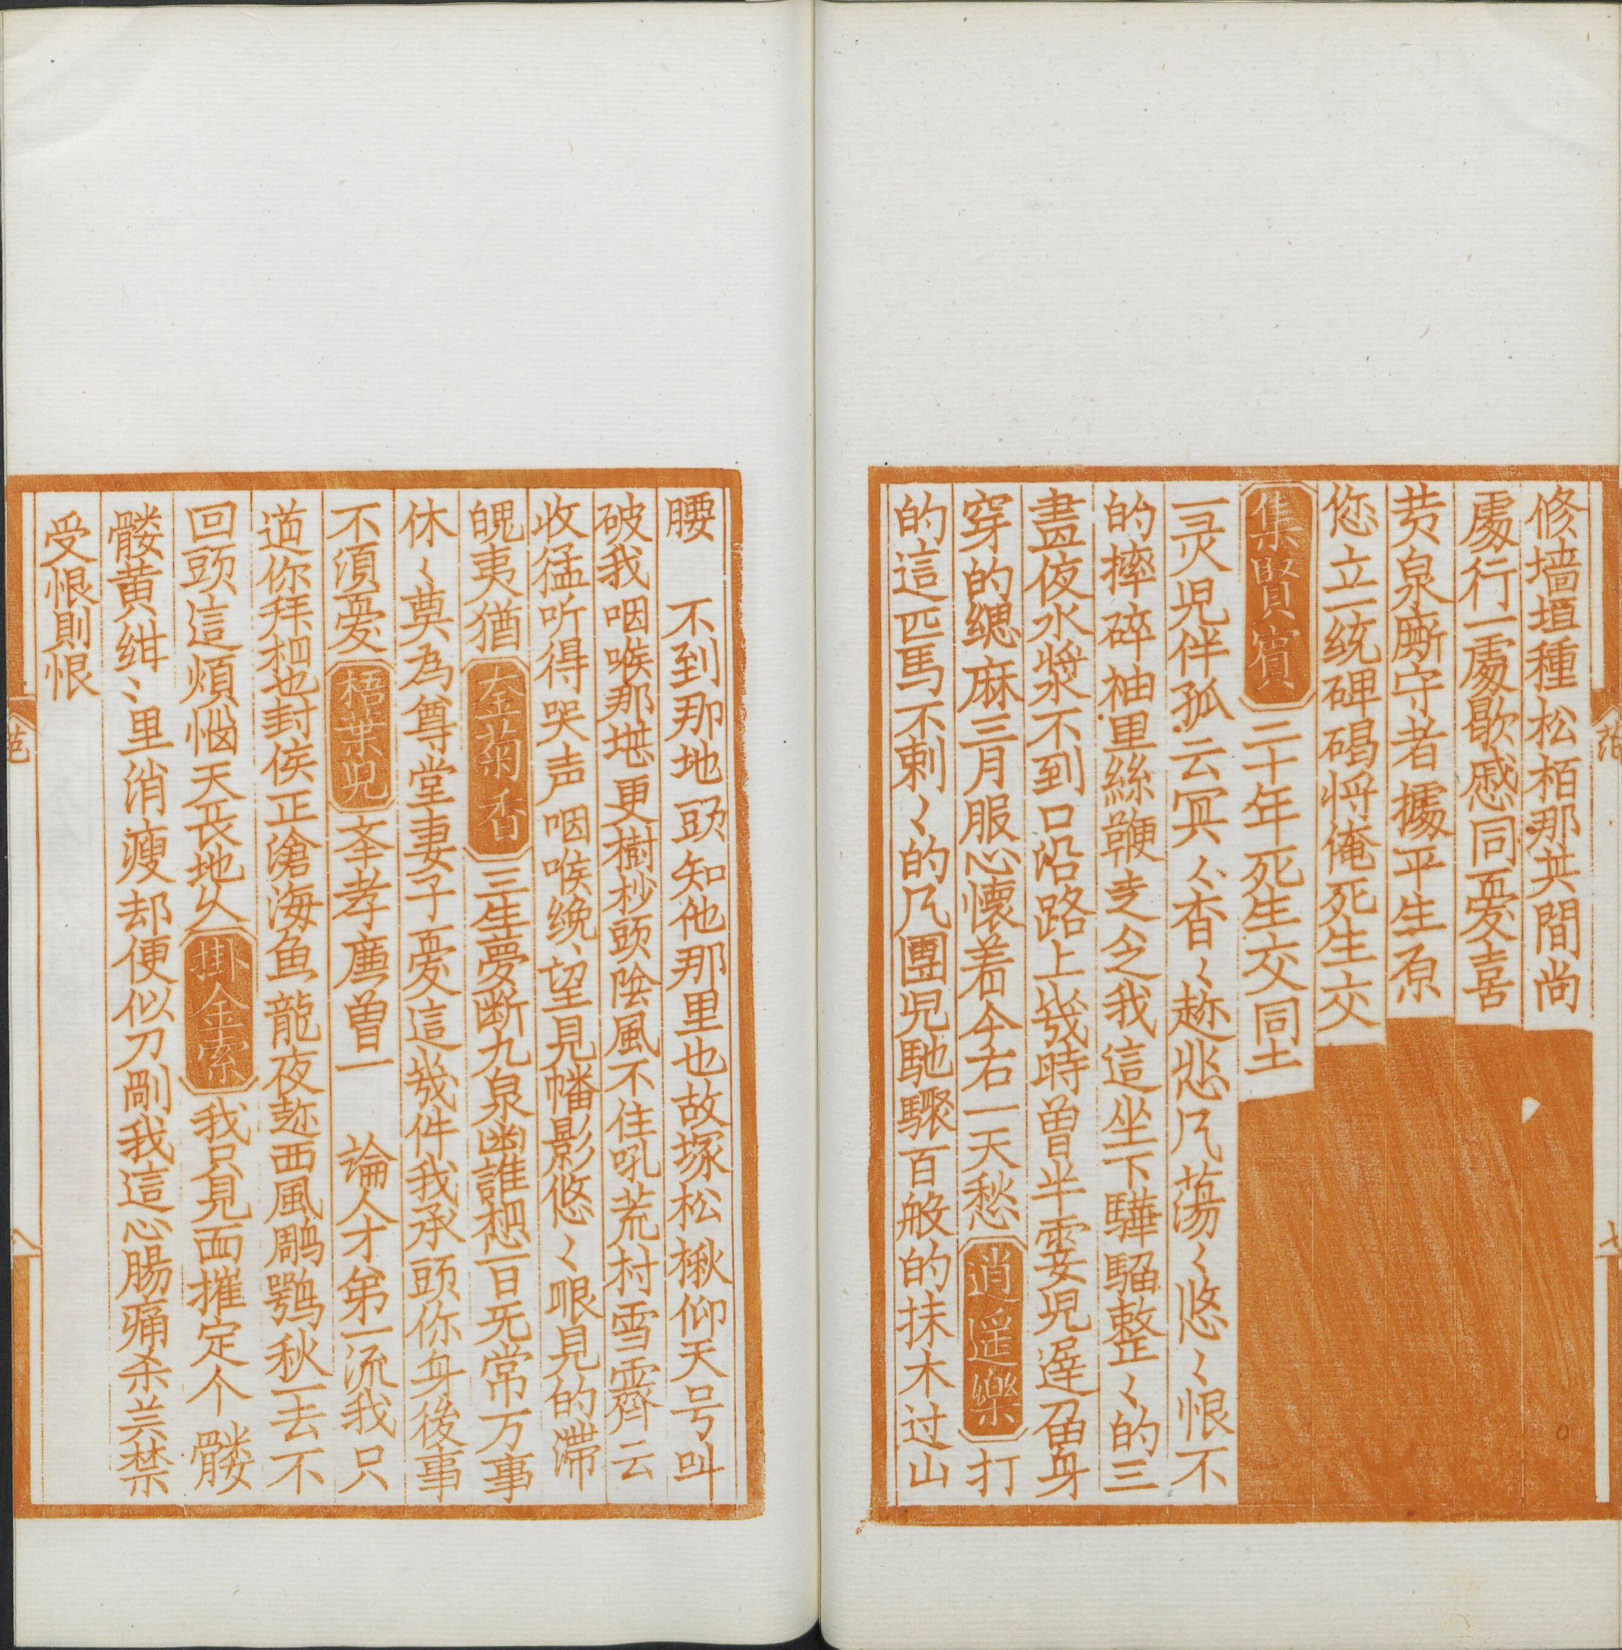 修墙垣種松栢那其間尚
處行一處歇慼同憂喜
黄泉廝守者據平生原
您立一統碑碣将俺死生交
集賢賓 二十年死生交同土
一灵児伴孤云冥〻杳〻趂悲风蕩〻悠〻恨不
的摔碎袖里絲鞭走之我這坐下驊騮整〻的三
晝夜水漿不到口沿路上幾時曾半霎児遅畱身
穿的緦麻三月服心懷着今古一天愁 逍遥樂 打
的這匹馬不剌〻的风團児馳驟百般的抹木过山
腰 不到那地頭知他那里也故塚松楸仰天号叫
破我咽喉那堪更樹杪頭陰風不住吼荒村雪霽云
收猛听得哭声咽喉纔〻望見幡影悠〻眼見的滯
魄夷猶 金菊香 三生夢断九泉幽誰想一日无常万事
休〻莫為尊堂妻子憂這幾件我承頭你身後事
不須憂 梧葉児 夲孝㢘曾一 論人才第一流我只
道你拜相也封侯正滄海鱼龍夜趂西風鵰鶚秋一去不
回頭這煩惱天長地久 掛金索 我只見面摧定个髏
髅黄绀〻里消瘦却便似刀剮我這心腸痛杀㒷禁
受恨則恨
范
七
范
八